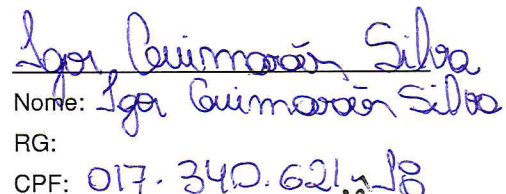 Igor Guimarães Silva
Nome: Igor Guimarães Silva
RG:
CPF: 017.340.621-18